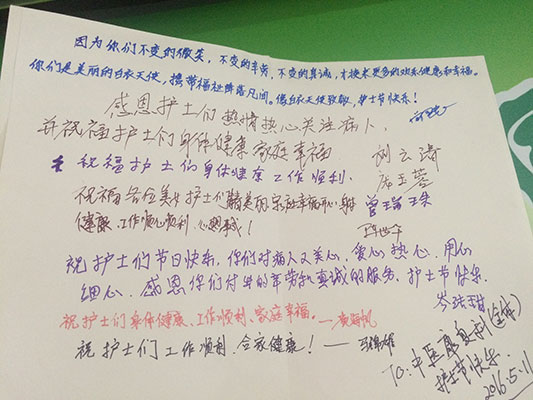 因为你们不变的微笑，不变的辛劳，不变的真诚，才换来更多的欢乐健康和幸福。
你们是美丽的白衣天使，携带福祉降落凡间。像白衣天使致敬，护士节快乐！
感恩护士们热情热心关注病人，
并祝福护士们身体健康 家庭幸福
祝福护士们身体健康 工作顺利。
刘云涛
庞玉蓉
祝福各位美女护士们越美丽 家庭幸福开心，身体
健康，工作顺心顺利，心想事成！
曾瑞珠
祝护士们节日快乐，你们对病人又关心，爱心 热心，用心
细心，感恩你们付出的辛劳和真诚的服务，护士节快乐
岑珠甜
祝护士们身体健康、工作顺利、家庭幸福。
祝护士们工作顺利，合家健康！
TO：中医康复科（全体）
护士节快乐
2016.5.11